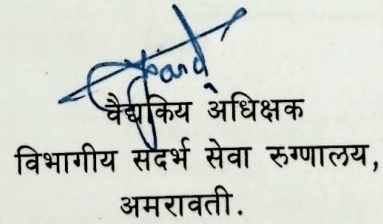 वैद्यकिय अधिक्षक
विभागीय संदर्भ सेवा रुग्णालय,
अमरावती.